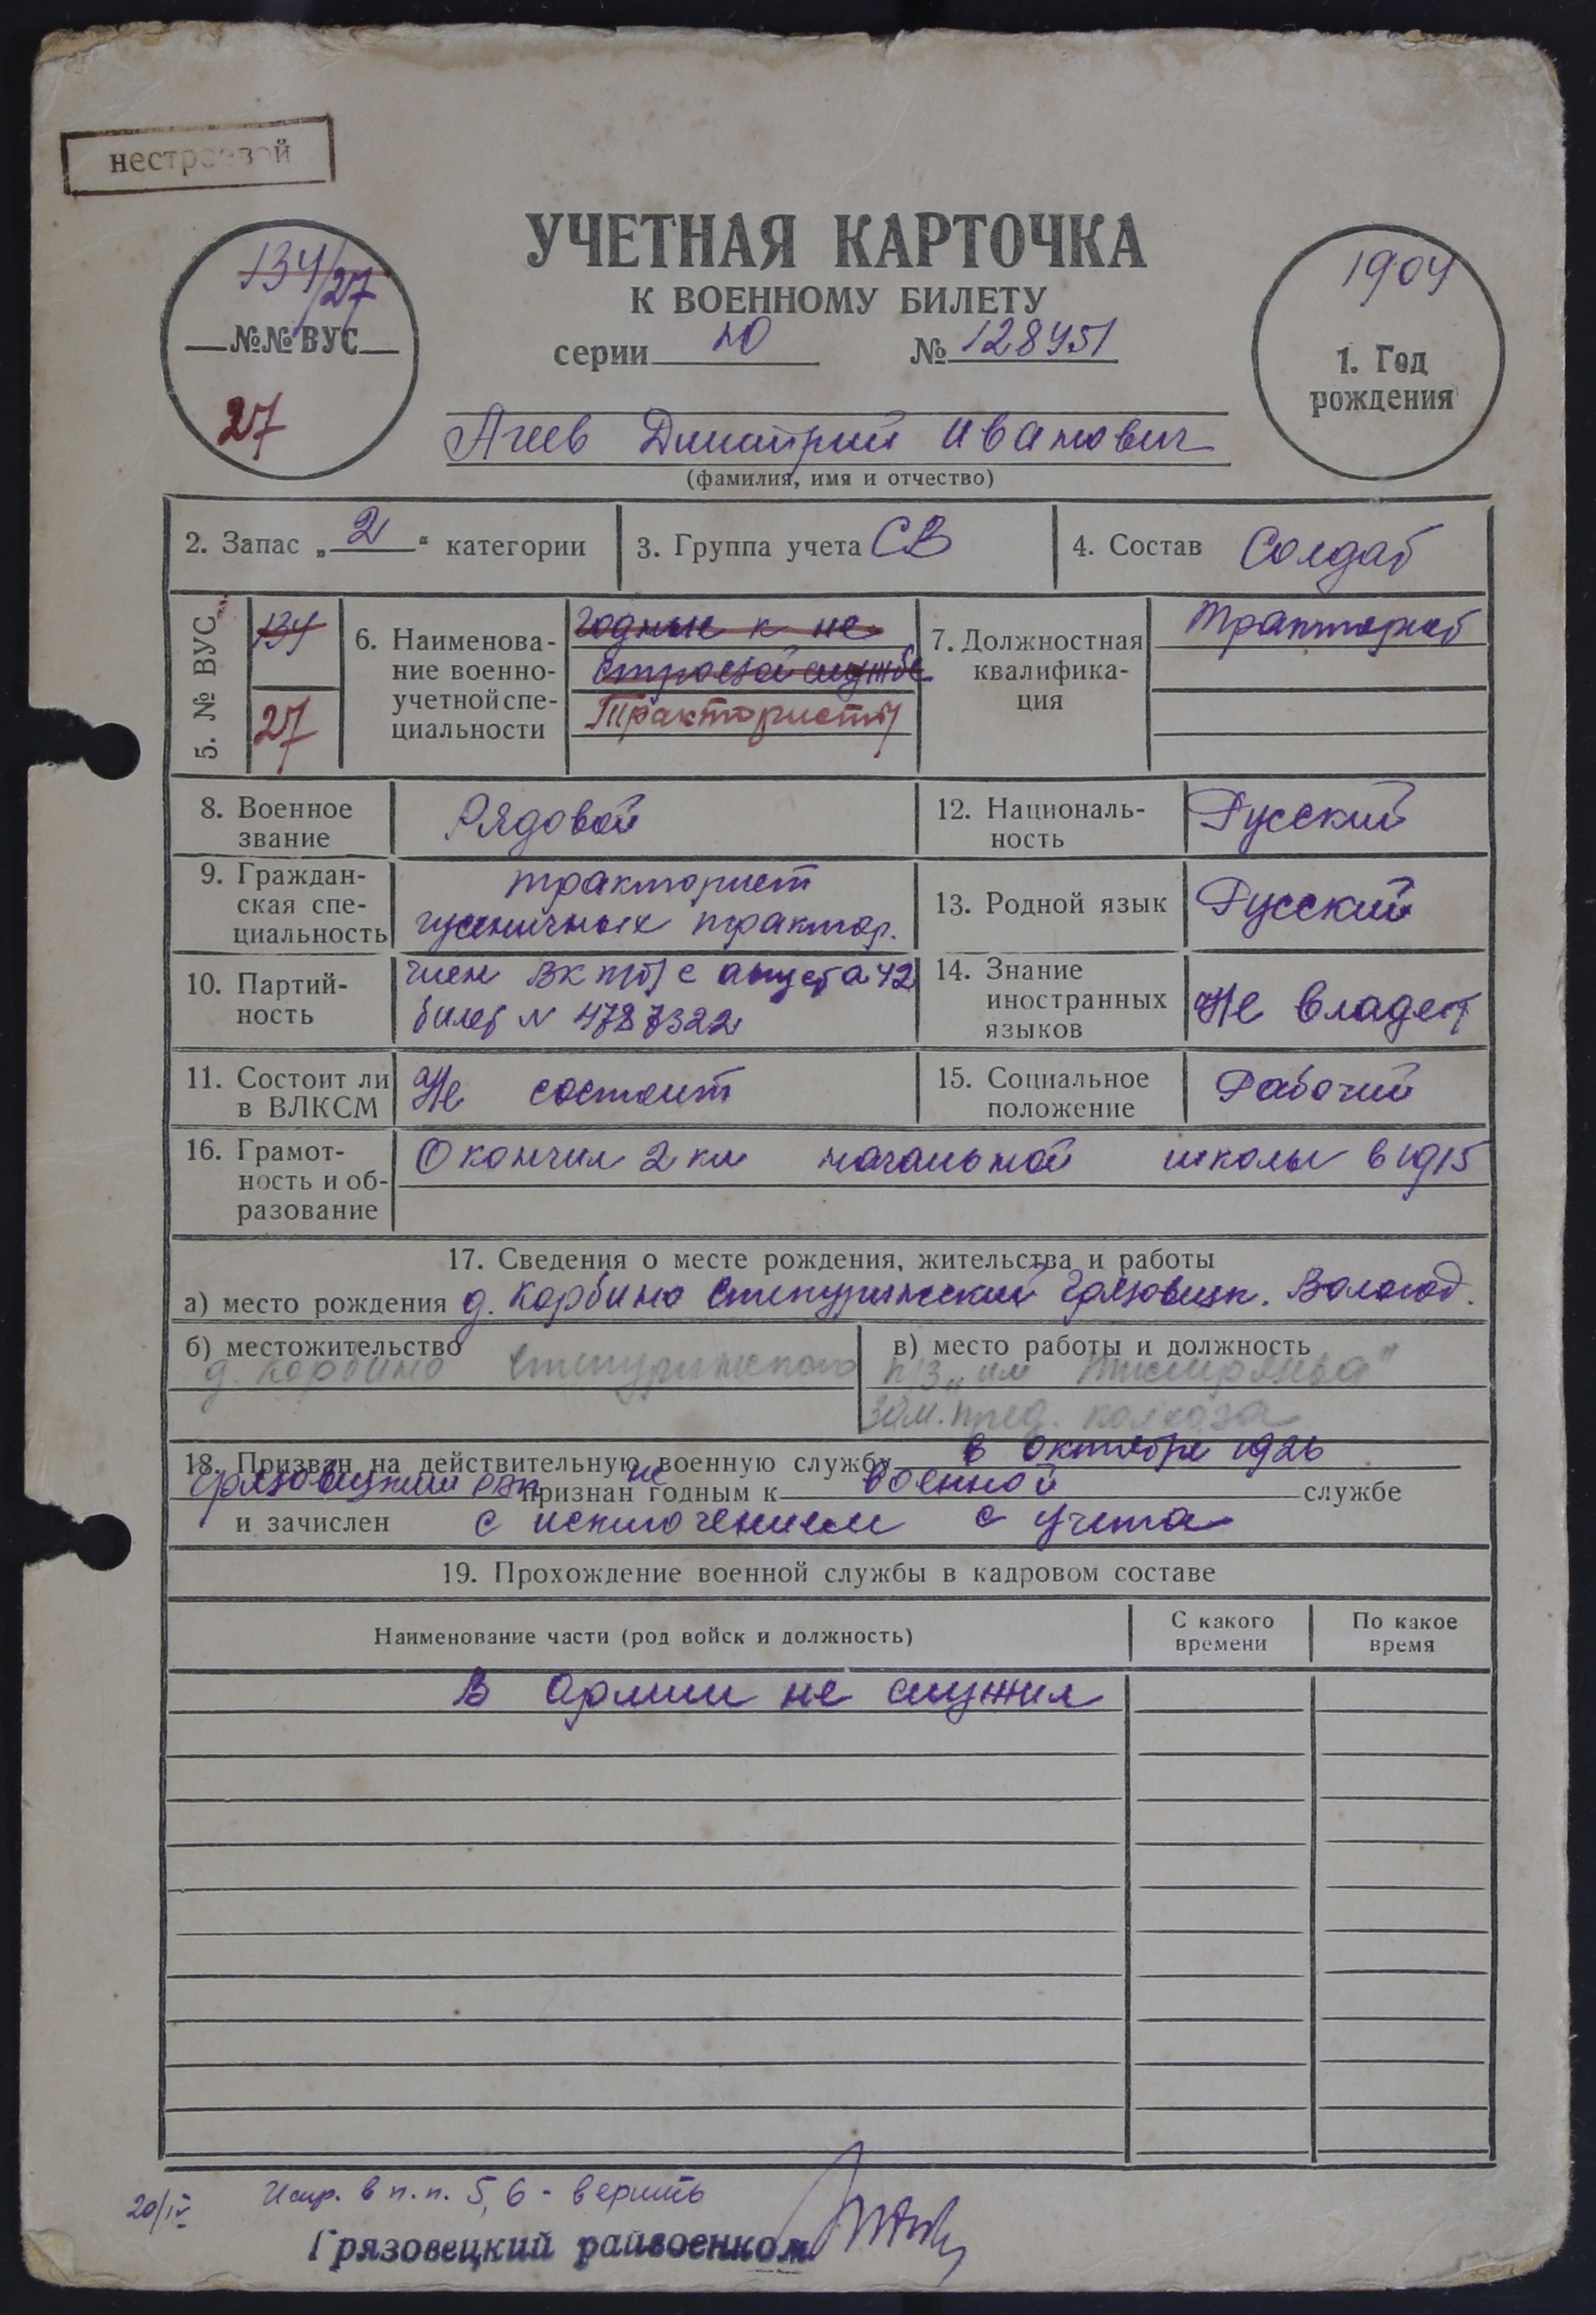 нестроевой
УЧЕТНАЯ КАРТОЧКА
К ВОЕННОМУ БИЛЕТУ
серии Ю № 128451
134/27
№№ ВУС
27
1904
1. Год
рождения
Агеев Дмитрий Иванович
(фамилия, имя и отчество)
2. Запас „2“ категории
3. Группа учета СВ
4. Состав Солдат
5. № ВУС
134
27
6. Наименова-
ние военно-
учетной спе-
циальности
годные к не
строевой службе
Трактористы
7. Должностная
квалифика-
ция
8. Военное
звание
Рядовой
12. Националь-
ность
Русский
9. Граждан-
ская спе-
циальность
тракторист
гусеничных трактор.
13. Родной язык
Русский
10. Партий-
ность
член ВКП(б) с августа 42
билет № 4787322
14. Знание
иностранных
языков
Не владеет
11. Состоит ли
в ВЛКСМ
Не состоит
15. Социальное
положение
Рабочий
16. Грамот-
ность и об-
разование
Окончил 2 кл начальной школы в 1915
17. Сведения о месте рождения, жительства и работы
а) место рождения д. Корбино Степуринский Грязовецк. Вологод.
б) местожительство
д. Корбино Степуринского
в) место работы и должность
к/з „им
зам. пред. колхоза
18. Призван на действительную военную службу в октябре 1926
Грязовецкий рвк признан не годным к военной службе
и зачислен с исключением с учета
19. Прохождение военной службы в кадровом составе
Наименование части (род войск и должность)
С какого
времени
По какое
время
В армии не служил
20/IV
Испр. в п.п. 5, 6 - верить
Грязовецкий райвоенком